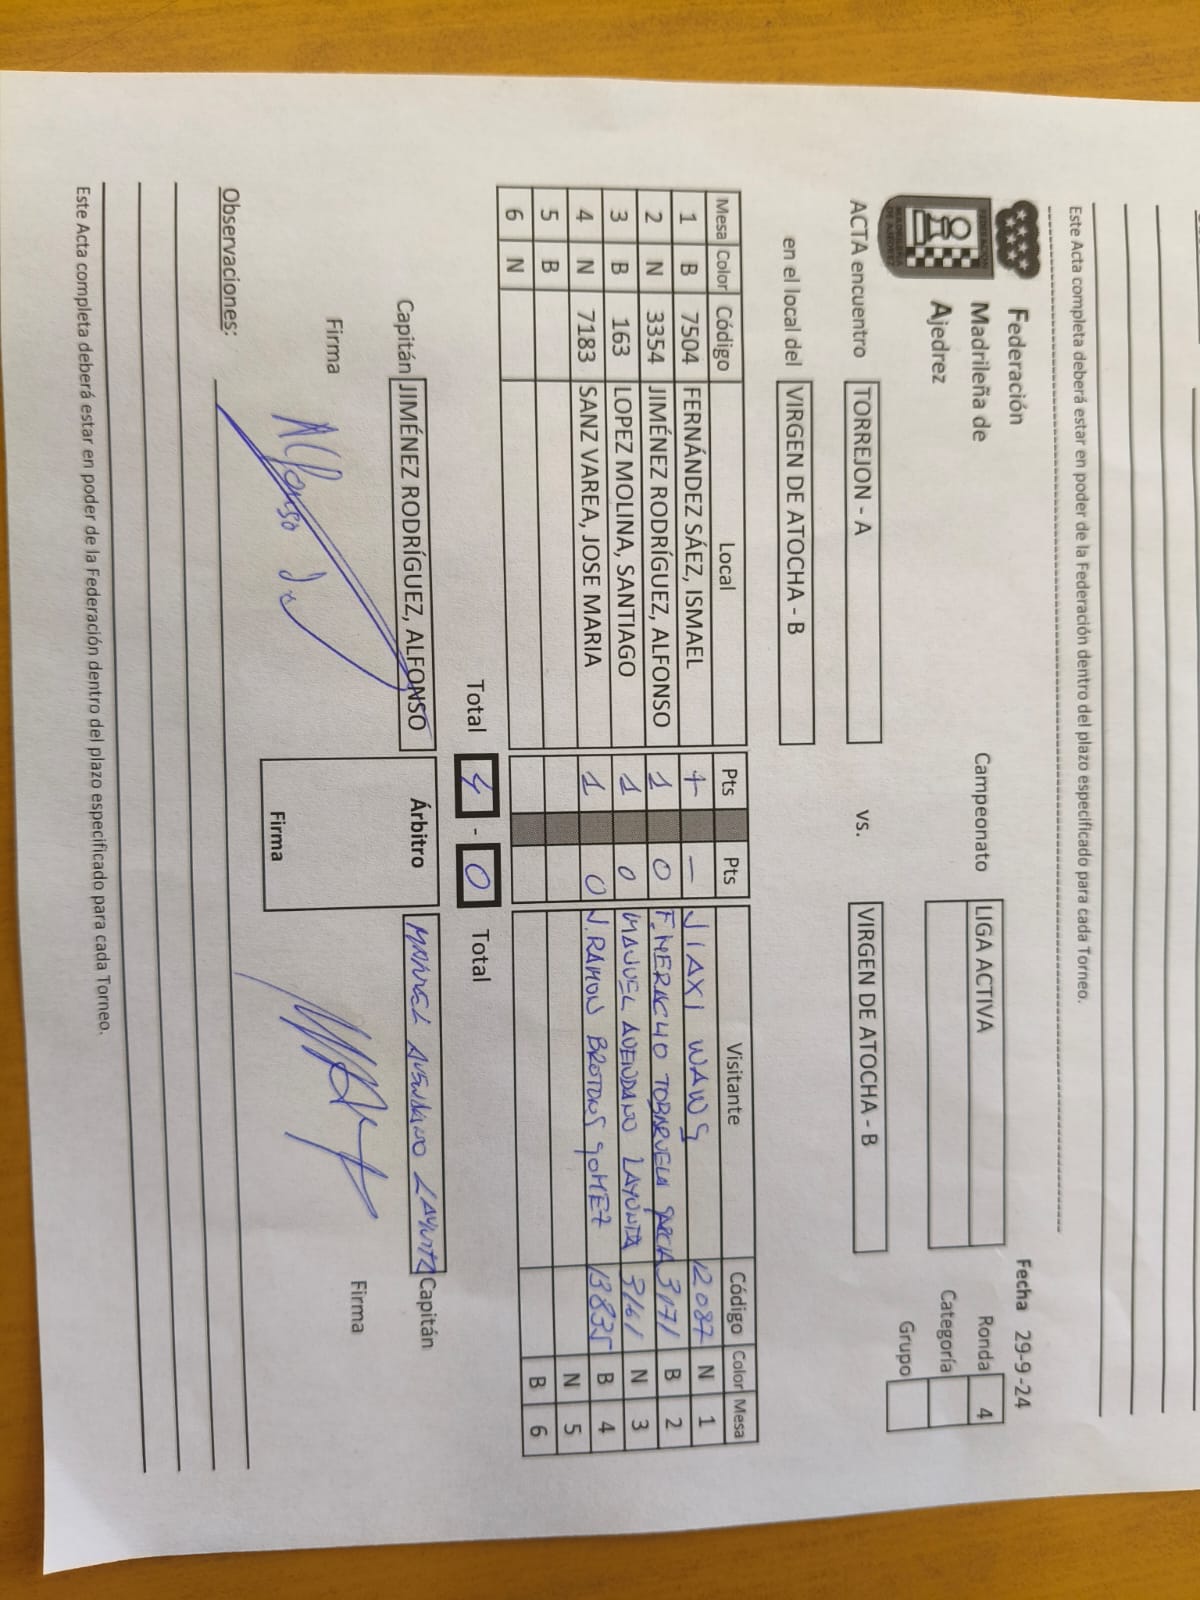 Este Acta completa deberá estar en poder de la Federación dentro del plazo especificado para cada Torneo.
Federación
Madrileña de
Ajedrez
FEDERACION
MADRILEÑA
DE AJEDREZ
Fecha 29-9-24
Campeonato LIGA ACTIVA
Ronda 4
Categoría
Grupo
ACTA encuentro TORREJON - A vs. VIRGEN DE ATOCHA - B
en el local del VIRGEN DE ATOCHA - B
Mesa Color Código Local Pts Pts Visitante Código Color Mesa
1 B 7504 FERNÁNDEZ SÁEZ, ISMAEL + — JIAXI WAWG 12087 N 1
2 N 3354 JIMÉNEZ RODRÍGUEZ, ALFONSO 1 0 F. TOBARUELA GARCIA 3171 B 2
3 B 163 LOPEZ MOLINA, SANTIAGO 1 0 MANUEL AVENDANO LAYUNTA 3161 N 3
4 N 7183 SANZ VAREA, JOSE MARIA 1 0 J. RAMON BROTONS GOMEZ 13835 B 4
5 B N 5
6 N B 6
Total 4 - 0 Total
Capitán JIMÉNEZ RODRÍGUEZ, ALFONSO Árbitro MANUEL AVENDANO LAYUNTA Capitán
Firma Alfonso Firma
Firma
Observaciones:
Este Acta completa deberá estar en poder de la Federación dentro del plazo especificado para cada Torneo.